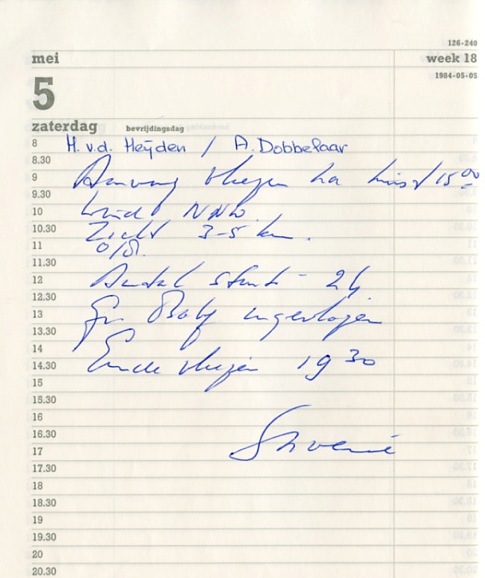 126-240
mei week 18
1984-05-05
5
zaterdag bevrijdingsdag
8 H. v.d. Heijden / A. Dobbelaar
8.30
9 Aanvang vliegen 15.00
9.30
10 Wind NNW.
10.30 Zicht 3-5 km.
11
11.30
12 Aantal starts - 24
12.30
13 ingevlogen
13.30
14
14.30 Einde vliegen 19 30
15
15.30
16
16.30
17
17.30
18
18.30
19
19.30
20
20.30